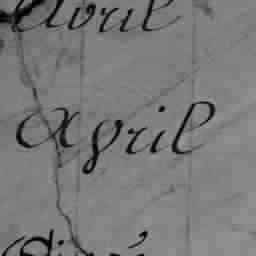 Avril
Avril